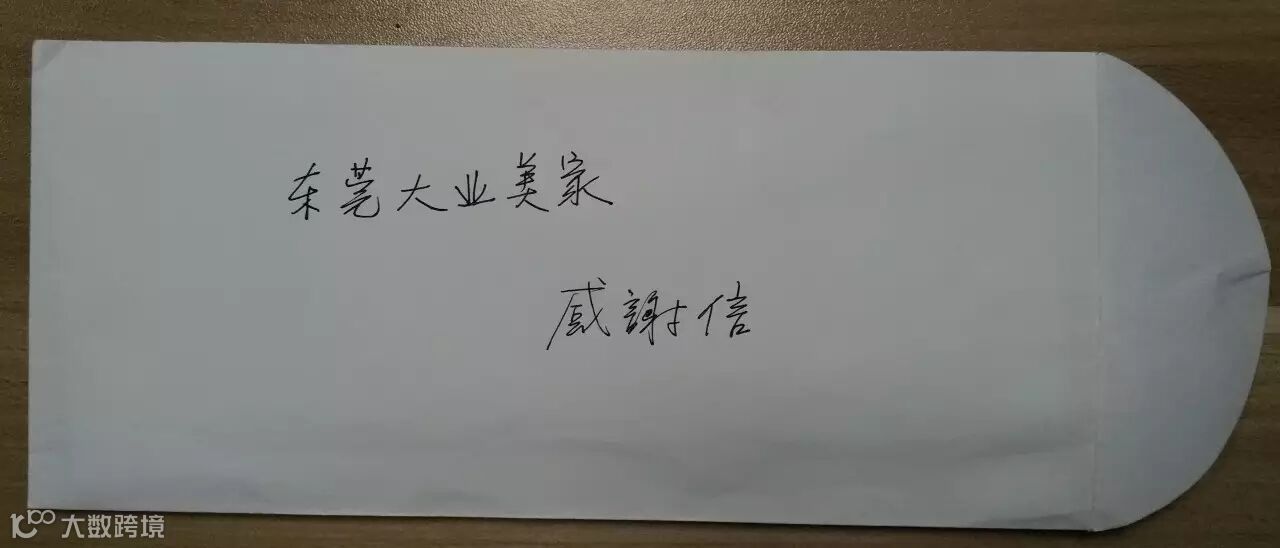 东莞大业美家
感謝信
大数跨境